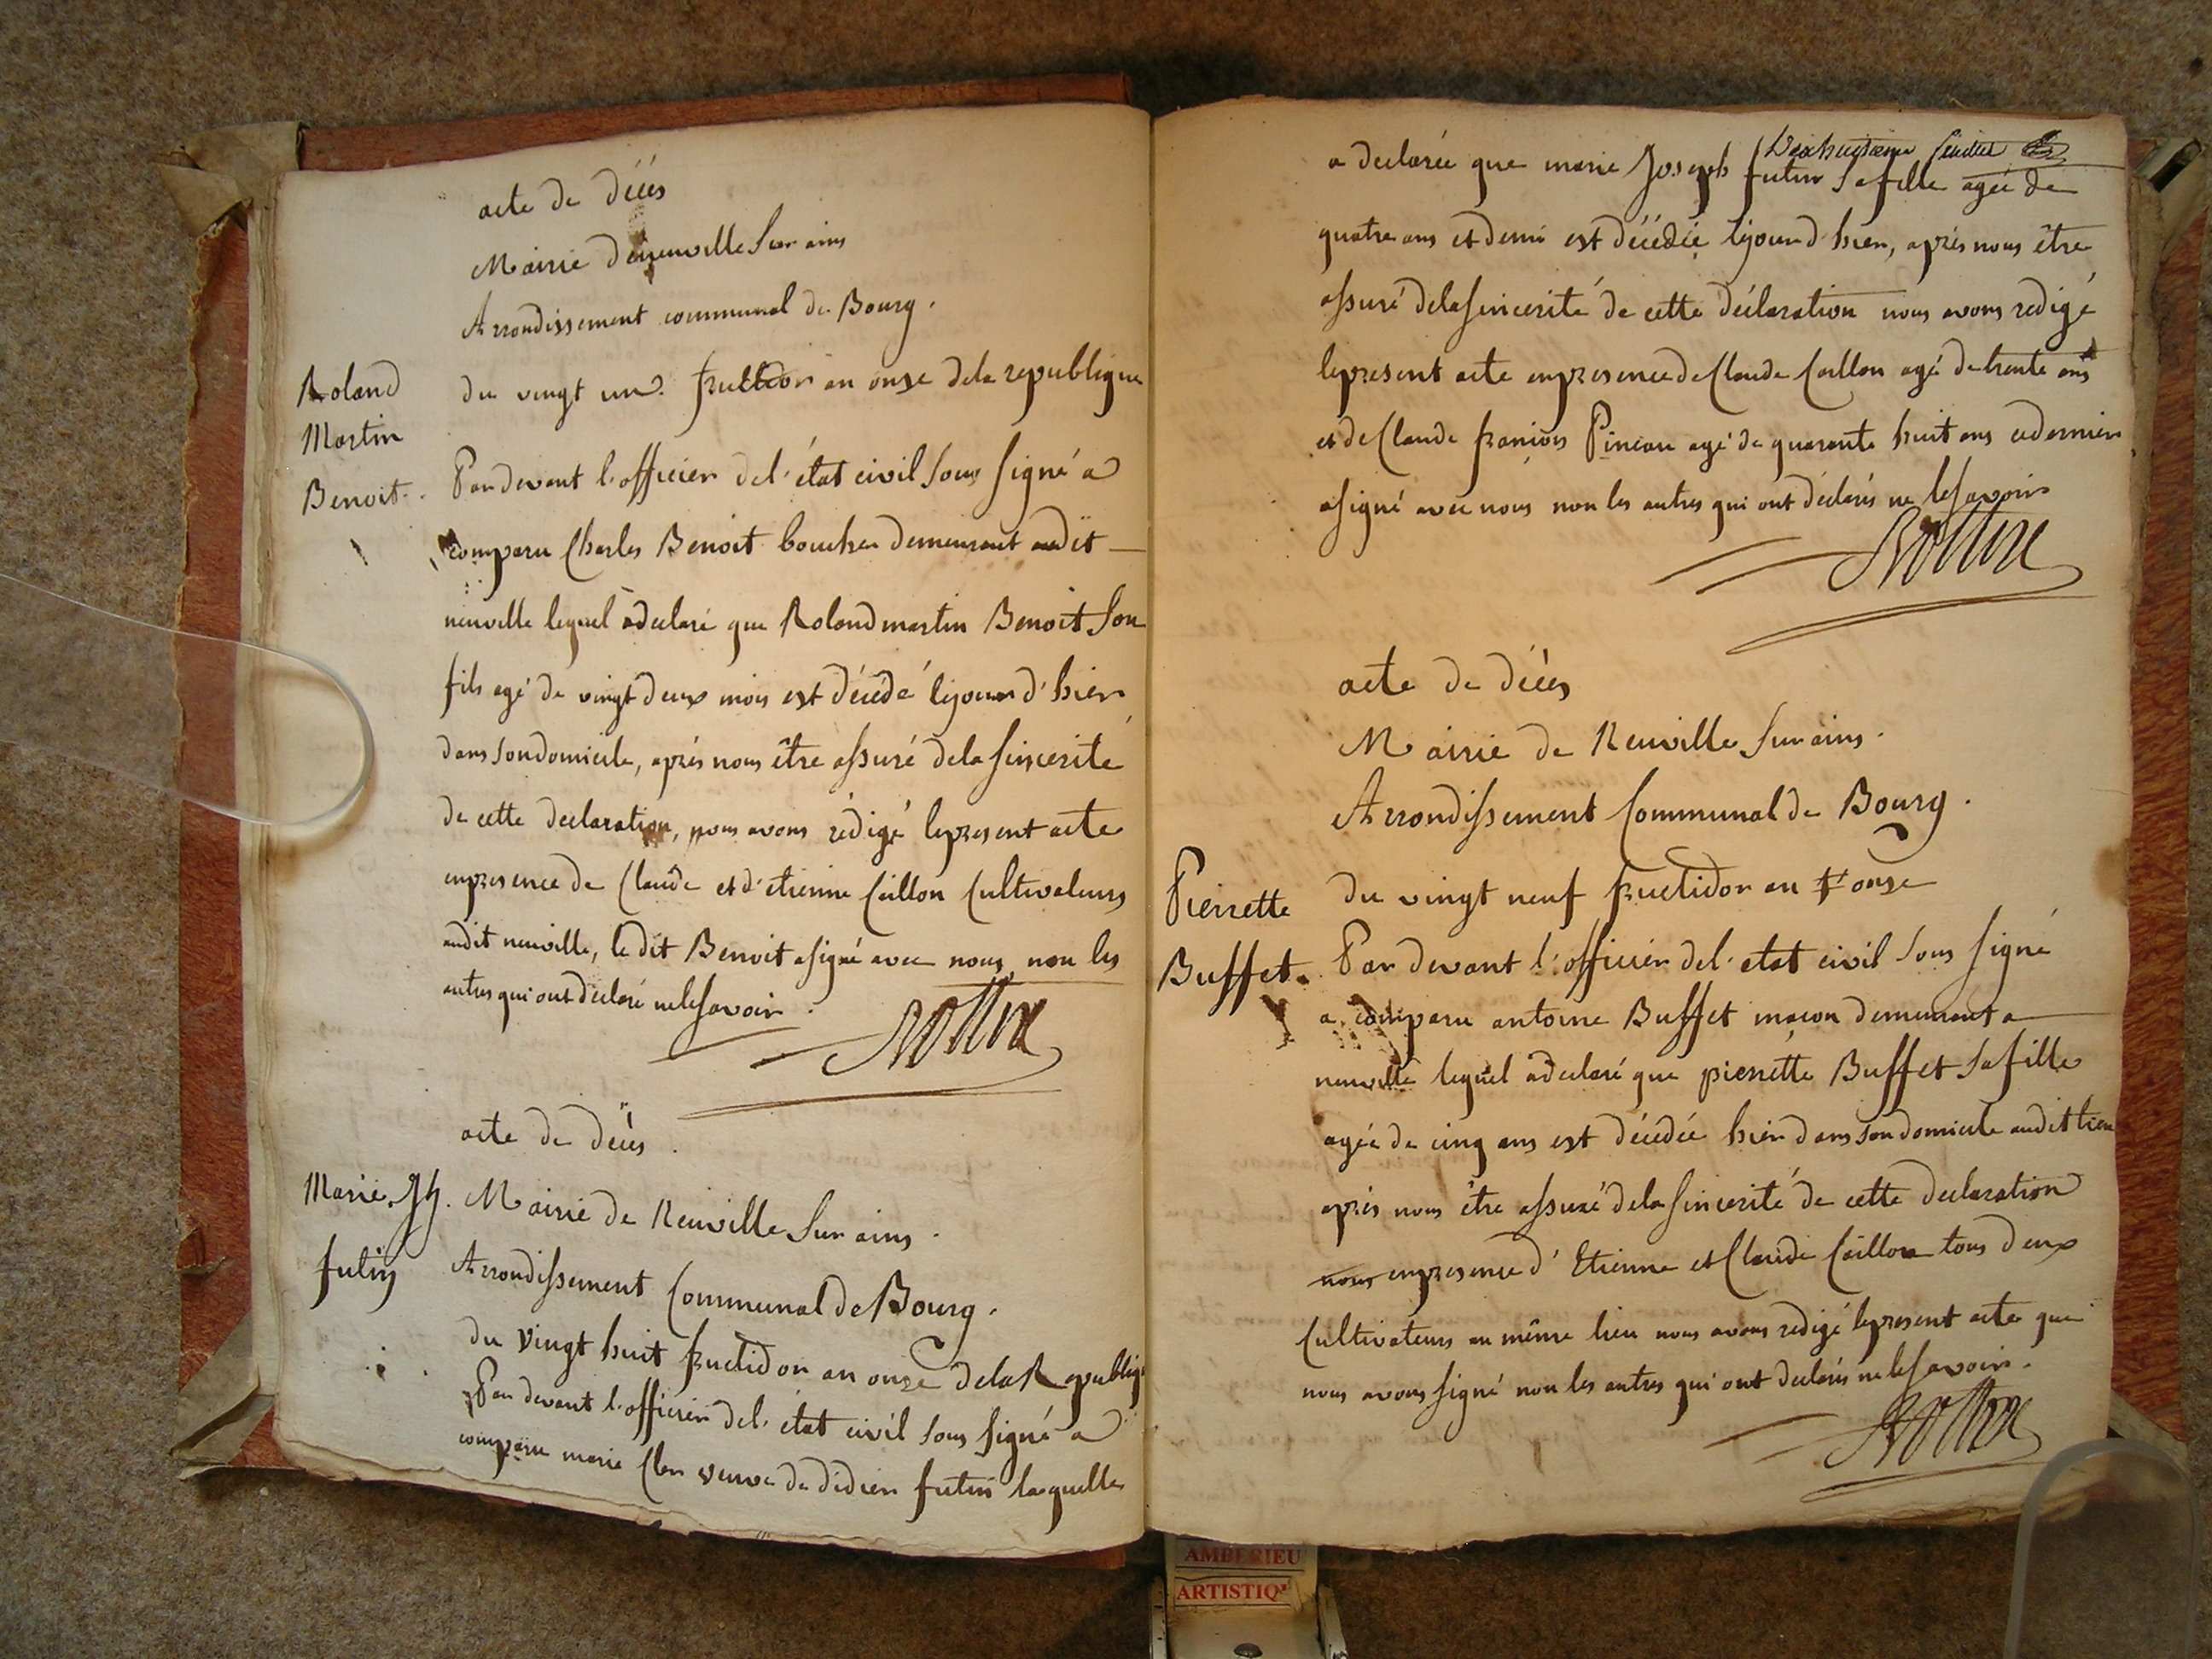 acte de décés
Mairie de neuville Sur ains
Arrondissement communal de Bourg.
Roland
Martin
Benoit.
du vingt un fructidor an onze dela republique
Par devant l'officier del'état civil Sous Signé a
comparu Charles Benoit boucher demeurant audit
neuville lequel a declaré que Roland martin Benoit Son
fils agé de vingt deux mois est décédé lejour d'hier
dans Son domicile, après nous être assuré dela Sincerité
de cette declaration, nous avons rédigé lepresent acte
enpresence de Claude et d'etienne Caillon Cultivateurs
audit neuville, le dit Benoit asigné avec nous non les
autres qui ont déclaré nele Savoir.
acte de décès.
Marie Jh.
futin
Mairie de Neuville Sur ains.
Arrondissement Communal de Bourg.
du vingt huit fructidor an onze dela Republiq
Par devant l'officier del'état civil Sous Signé a
comparu marie veuve de didier futin laquelle
a declarée que marie Joseph futin Sa fille agée de
quatre ans et demi est décédée lejour d'hier, après nous être
assuré dela Sincerité de cette déclaration nous avons redigé
lepresent acte enpresence de Claude Caillon agé de trente ans
et de Claude françois agé de quarante huit ans ce dernier
asigné avec nous non les autres qui ont déclarés ne le Savoir
acte de décès
Mairie de Neuville Sur ains.
Arrondissement Communal de Bourg.
Pierrette
Buffet.
du vingt neuf fructidor an onze
Par devant l'officier del'etat civil Sous Signé
a comparu antoine Buffet maçon demeurant a
neuville lequel a declaré que pierrette Buffet Sa fille
agée de cinq ans est décédée hier dans Son domicile audit lieu
après nous être assuré dela Sincerité de cette declaration
nous enpresence d'Etienne et Claude Caillon tous deux
Cultivateurs au même lieu nous avons redigé lepresent acte que
nous avons Signé non les autres qui ont declarés nele Savoir.
AMBERIEU
ARTISTIQ